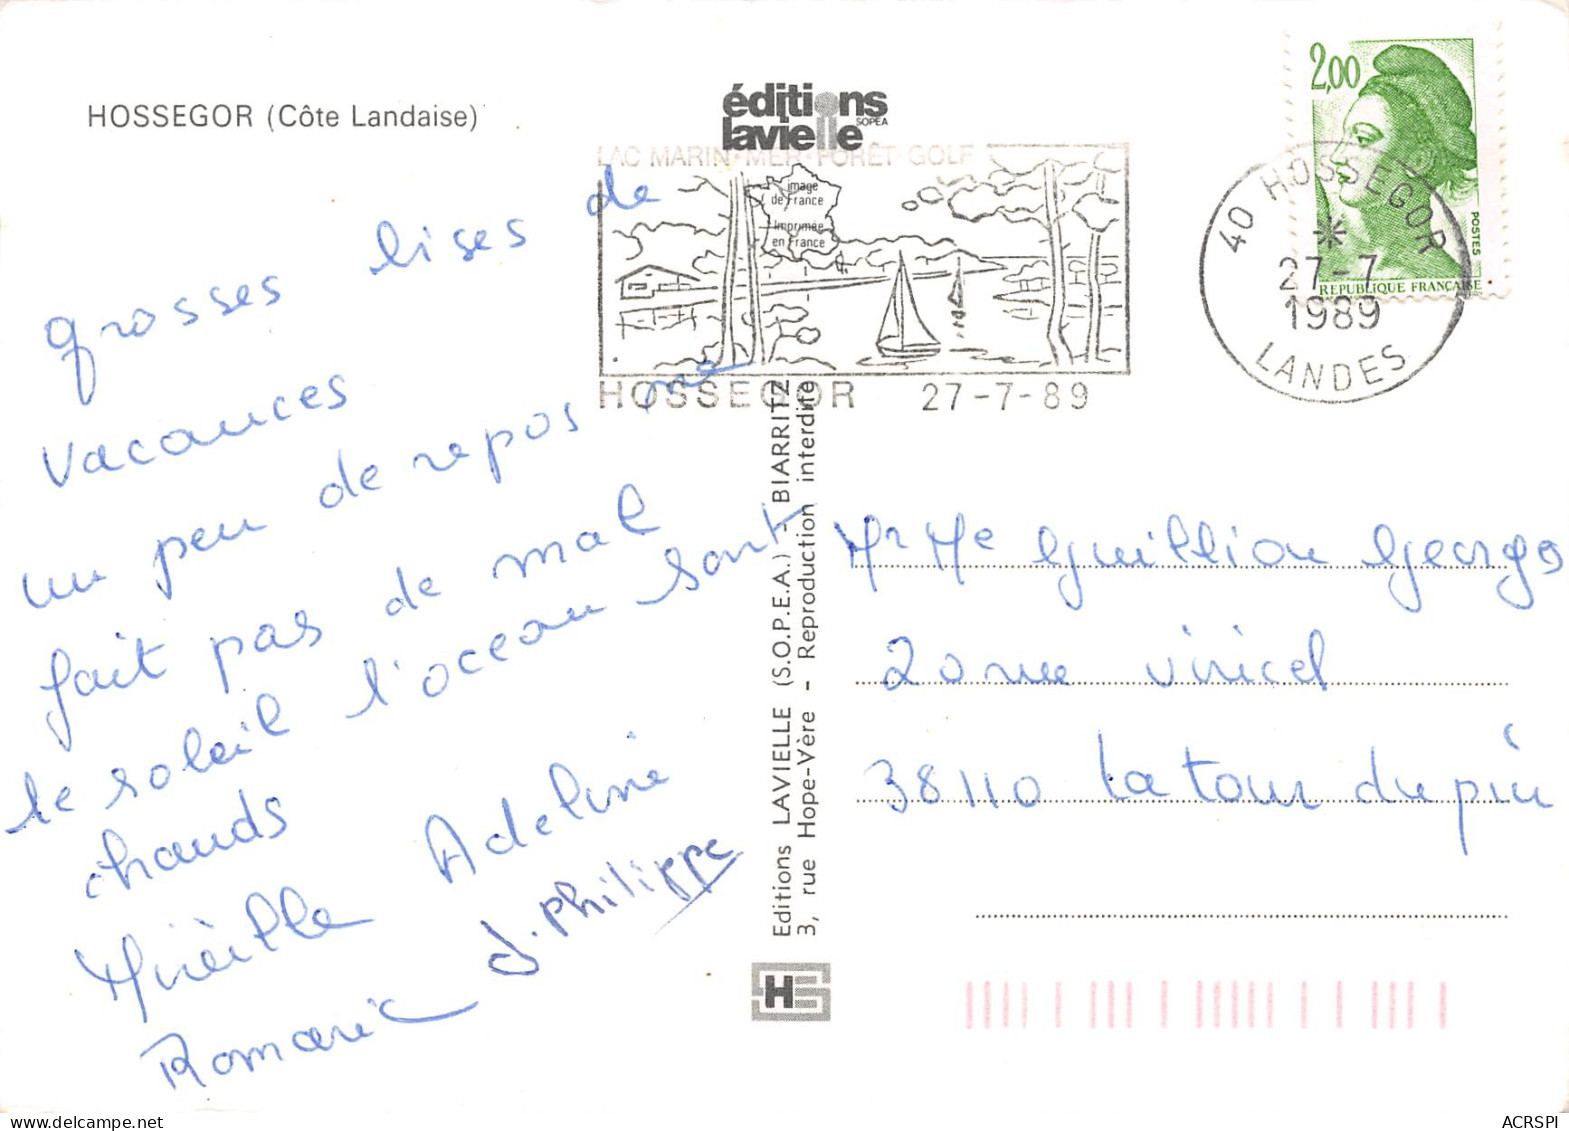 HOSSEGOR (Côte Landaise)
éditions
lavielle
SOPEA
LAC MARIN·MER·FORÊT·GOLF
image
de France
Imprimée
en France
HOSSEGOR 27-7-89
2,00
POSTES
REPUBLIQUE FRANÇAISE
40 HOSSEGOR
27-7
1989
LANDES
grosses bises de
vacances
un peu de repos ne
fait pas de mal
le soleil l'océan sont
chauds
Mireille Adeline
Romaric J.Philippe
Editions LAVIELLE (S.O.P.E.A.) - BIARRITZ
3, rue Hope-Vère - Reproduction interdite
Mr Me Guillion Georges
20 rue Viricel
38110 La Tour du pin
ACRSPI